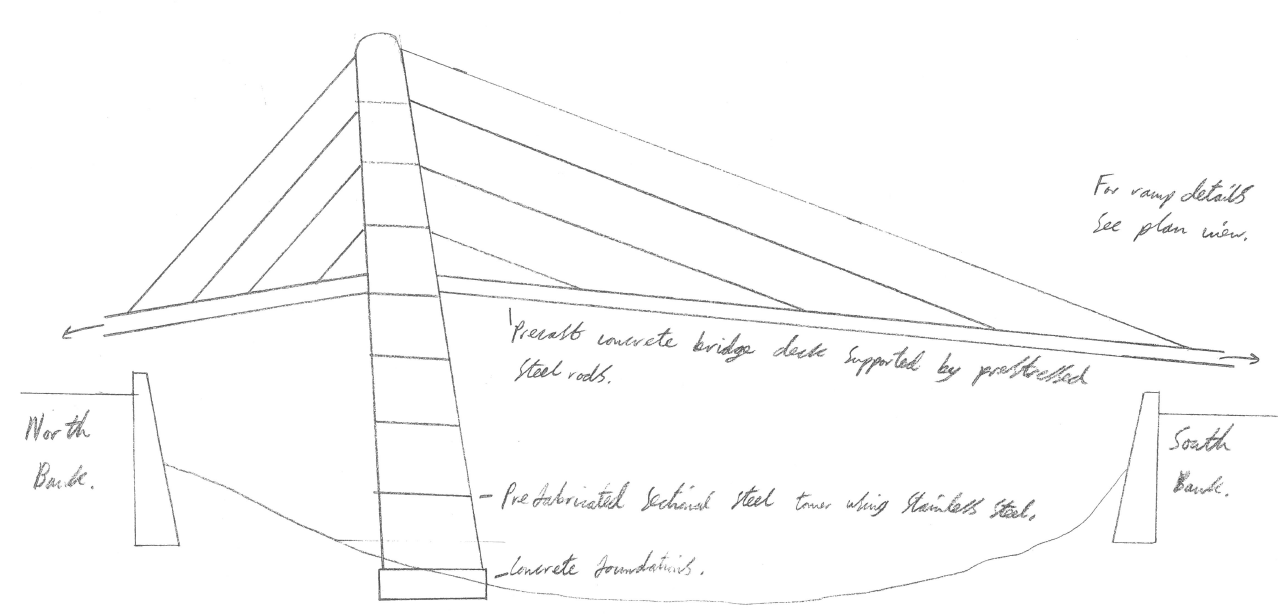 For ramp details
See plan view.
Precast concrete bridge deck supported by prestressed
Steel rods.
North
Bank.
South
Bank.
Prefabricated Sectional Steel tower using Stainless Steel.
Concrete foundations.